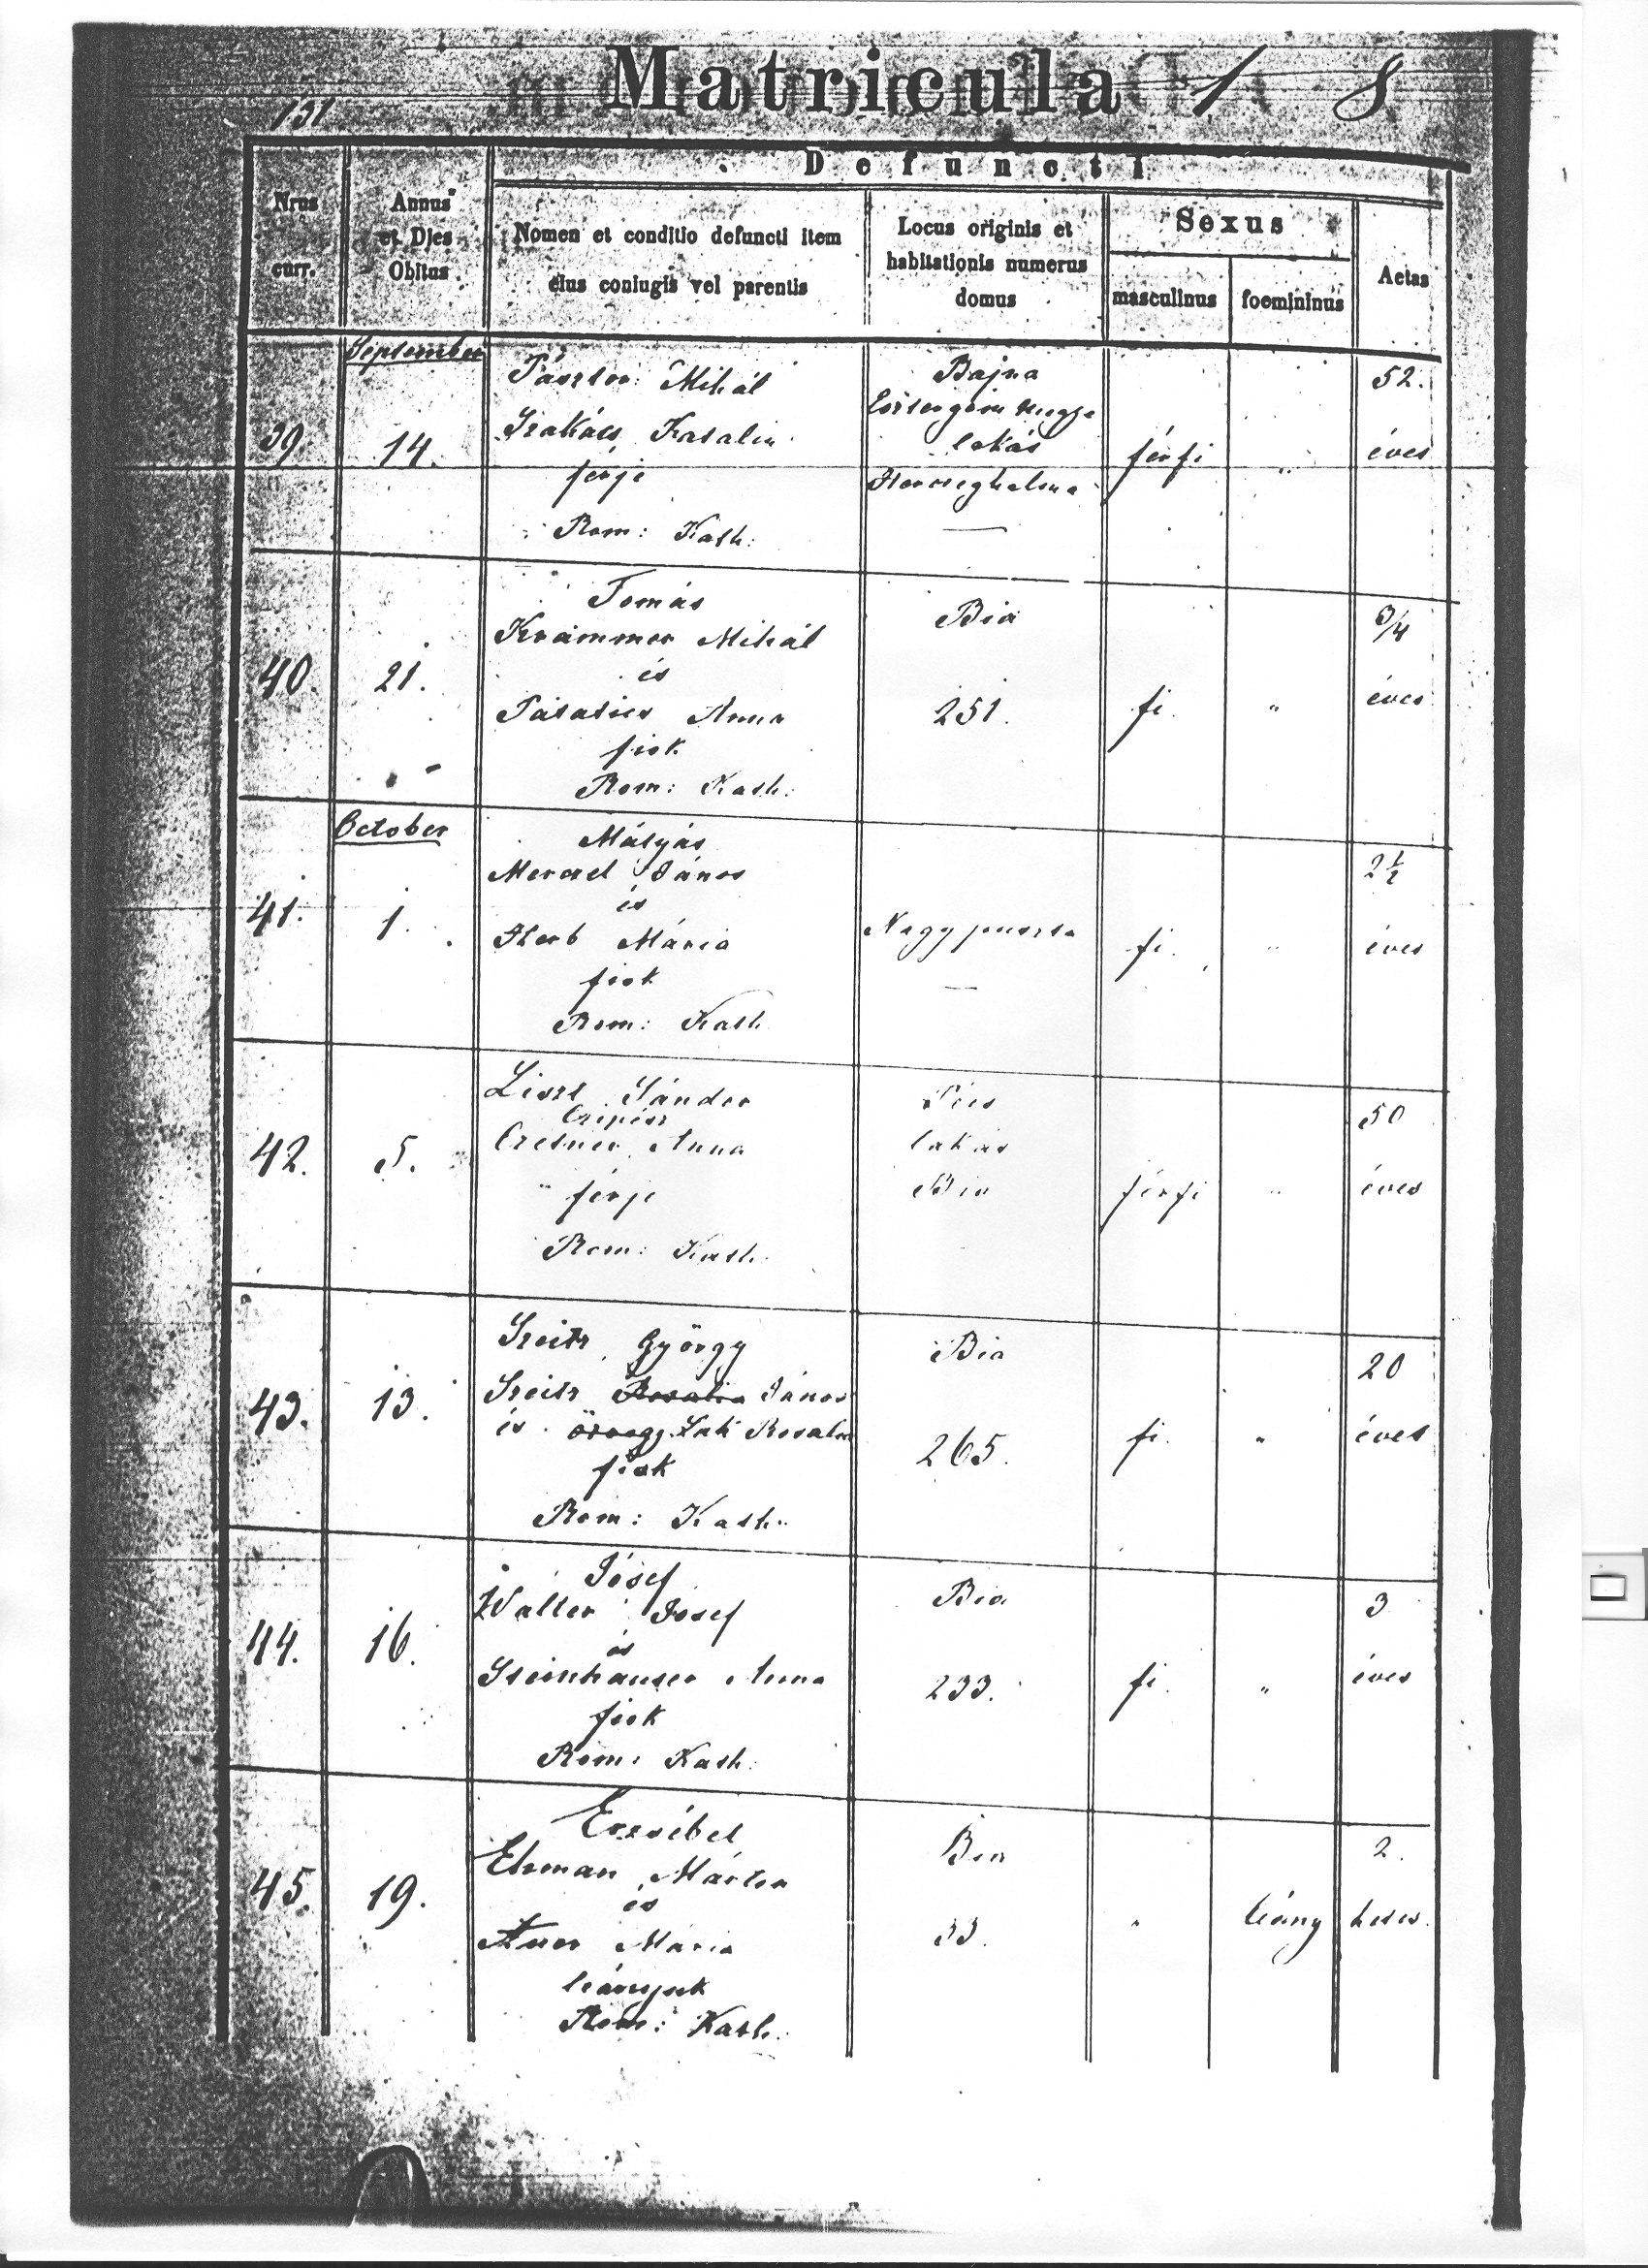 Matricula 1 8
131
Defuncti
Nrus curr.
Annus et Dies Obitus
Nomen et conditio defuncti item eius coniugis vel parentis
Locus originis et habitationis numerus domus
Sexus
masculinus
foemininus
Aetas
September
39. 14.
Pásztor Mihál
Szakács Katalin
férje
Rom: Kath:
Bajna
Esztergom megye
lakás
Herczeghalma
—
férfi
"
52.
éves
40. 21.
Tomás
Krammer Mihál
és
Anna
fiok
Rom: Kath:
Bia
251.
fi.
"
3/4
éves
October
41. 1.
Mátyás
János
és
Herb Mária
fiok
Rom: Kath
Nagy puszta
—
fi.
"
2 1/2
éves
42. 5.
Liszt Sándor
Anna
férje
Rom: Kath.
lakás
Bia
férfi
"
50
éves
43. 13.
Szeitz György
Szeitz Rosalia János
és özvegy. Rosalia
fiok
Rom: Kath:
Bia
265.
fi.
"
20
éves
44. 16.
Jósef
Walter Josef
és
Steinhauser Anna
fiok
Rom: Kath:
Bia
233.
fi.
"
3
éves
45. 19.
Erzsébet
Ehman Márton
és
Auer Mária
leányuk
Rom: Kath:
Bia
33.
"
leány
2.
hetes.